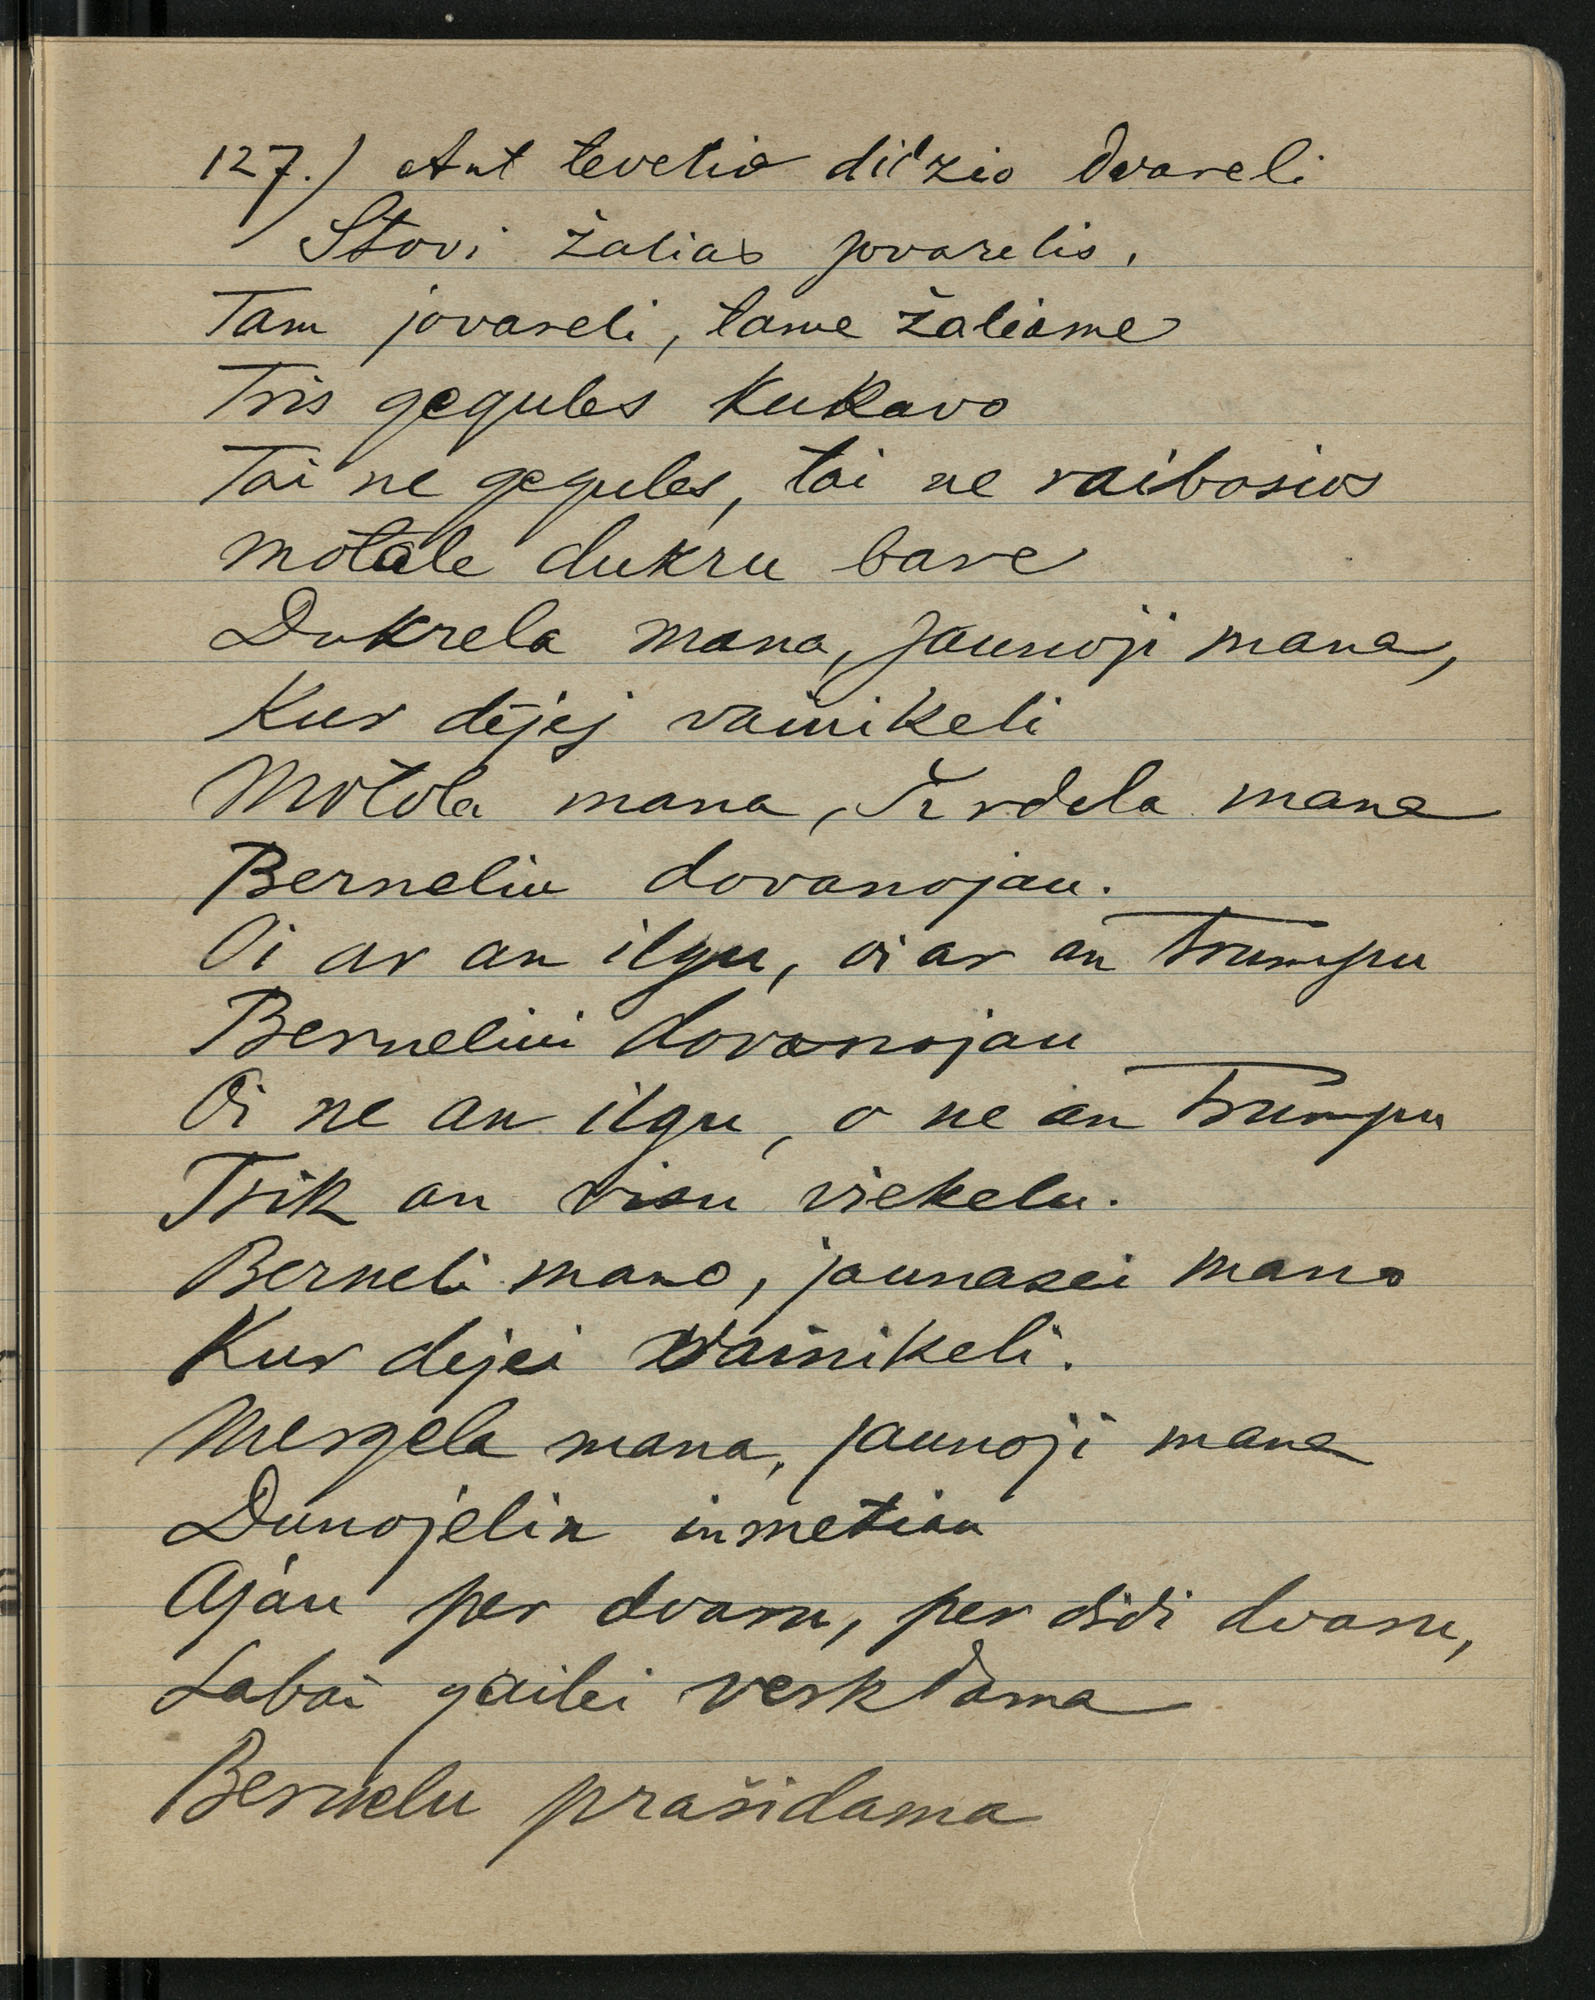 127.) Ant tevelio didžio dvareli
Stovi žalias jovarelis,
Tam jovareli, tame žaliame
Tris gegules kukavo
Tai ne gegules, tai ne raibosios
motale dukru bare
Dukrela mana, jaunoji mana,
Kur dėjej vainikeli
Motola mana, širdela mana
Berneliu dovanojau.
Oi ar an ilgu, oi ar an trumpu
Berneliui dovanojau
Oi ne an ilgu, o ne an trumpu
Trik an visu viekelu.
Berneli mano, jaunasei mano
Kur dejei vainikeli.
Mergela mana, jaunoji mana
Dunojelin inmetiau
Ajau per dvaru, per didi dvaru,
Labai gailei verkdama
Bernelu prašidama